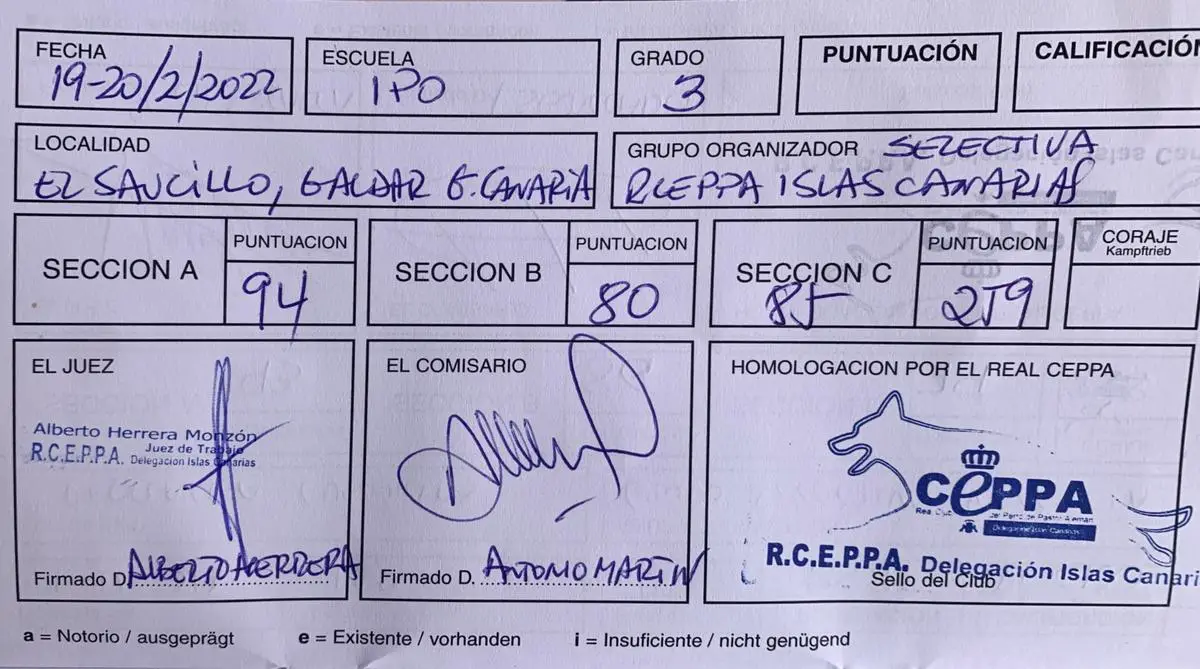 FECHA
19-20/2/2022
ESCUELA
IPO
GRADO
3
PUNTUACIÓN
CALIFICACIÓN
LOCALIDAD
EL SAUCILLO, GALDAR G. CANARIA
GRUPO ORGANIZADOR SELECTIVA
RCEPPA ISLAS CANARIAS
SECCION A
PUNTUACION
94
SECCION B
PUNTUACION
80
SECCION C
85
PUNTUACION
259
CORAJE
Kampftrieb
EL JUEZ
Alberto Herrera Monzón
Juez de Trabajo
R.C.E.P.P.A. Delegacion Islas Canarias
Firmado D. ALBERTO HERRERA
EL COMISARIO
Firmado D. ANTONIO MARTIN
HOMOLOGACION POR EL REAL CEPPA
CEPPA
Real Club del Perro de Pastor Aleman
Delegación Islas Canarias
R.C.E.P.P.A. Delegación Islas Canari
Sello del Club
a = Notorio / ausgeprägt
e = Existente / vorhanden
i = Insuficiente / nicht genügend